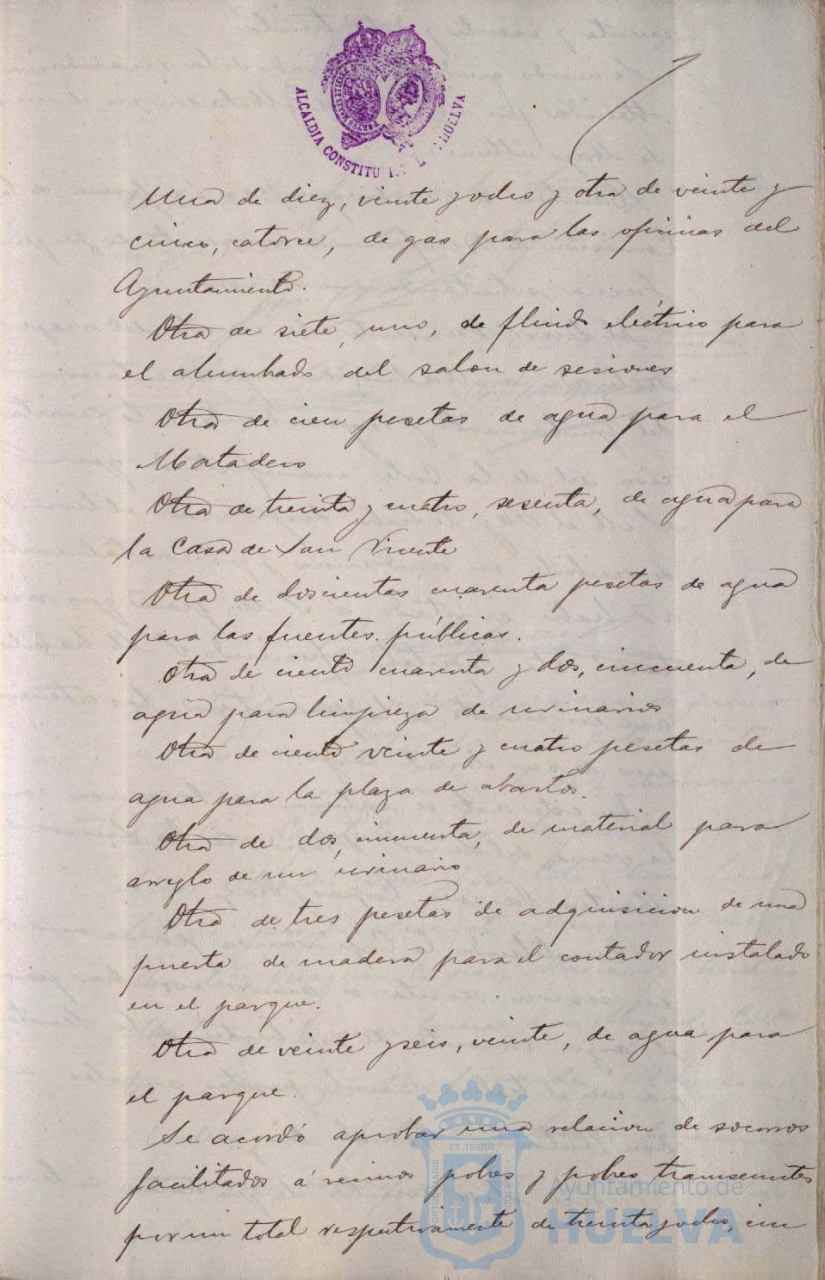 ALCALDIA CONSTITU HUELVA
Una de diez, veinte y ocho y otra de veinte y
cinco, catorce, de gas para las oficinas del
Ayuntamiento.
Otra de siete, uno, de fluido eléctrico para
el alumbrado del salon de sesiones
Otra de cien pesetas de agua para el
Matadero
Otra de treinta y cuatro, sesenta, de agua para
la Casa de San Vicente
Otra de doscientas cuarenta pesetas de agua
para las fuentes públicas.
Otra de ciento cuarenta y dos, cincuenta, de
agua para limpieza de urinarios
Otra de ciento veinte y cuatro pesetas de
agua para la plaza de abastos.
Otra de dos, cincuenta, de material para
arreglo de un urinario
Otra de tres pesetas de adquisicion de una
puerta de madera para el contador instalado
en el parque.
Otra de veinte y seis, veinte, de agua para
el parque.
Se acordó aprobar una relacion de socorros
facilitados á vecinos pobres y pobres transeuntes
por un total respectivamente de treinta y ocho, cin
Ayuntamiento de
HUELVA